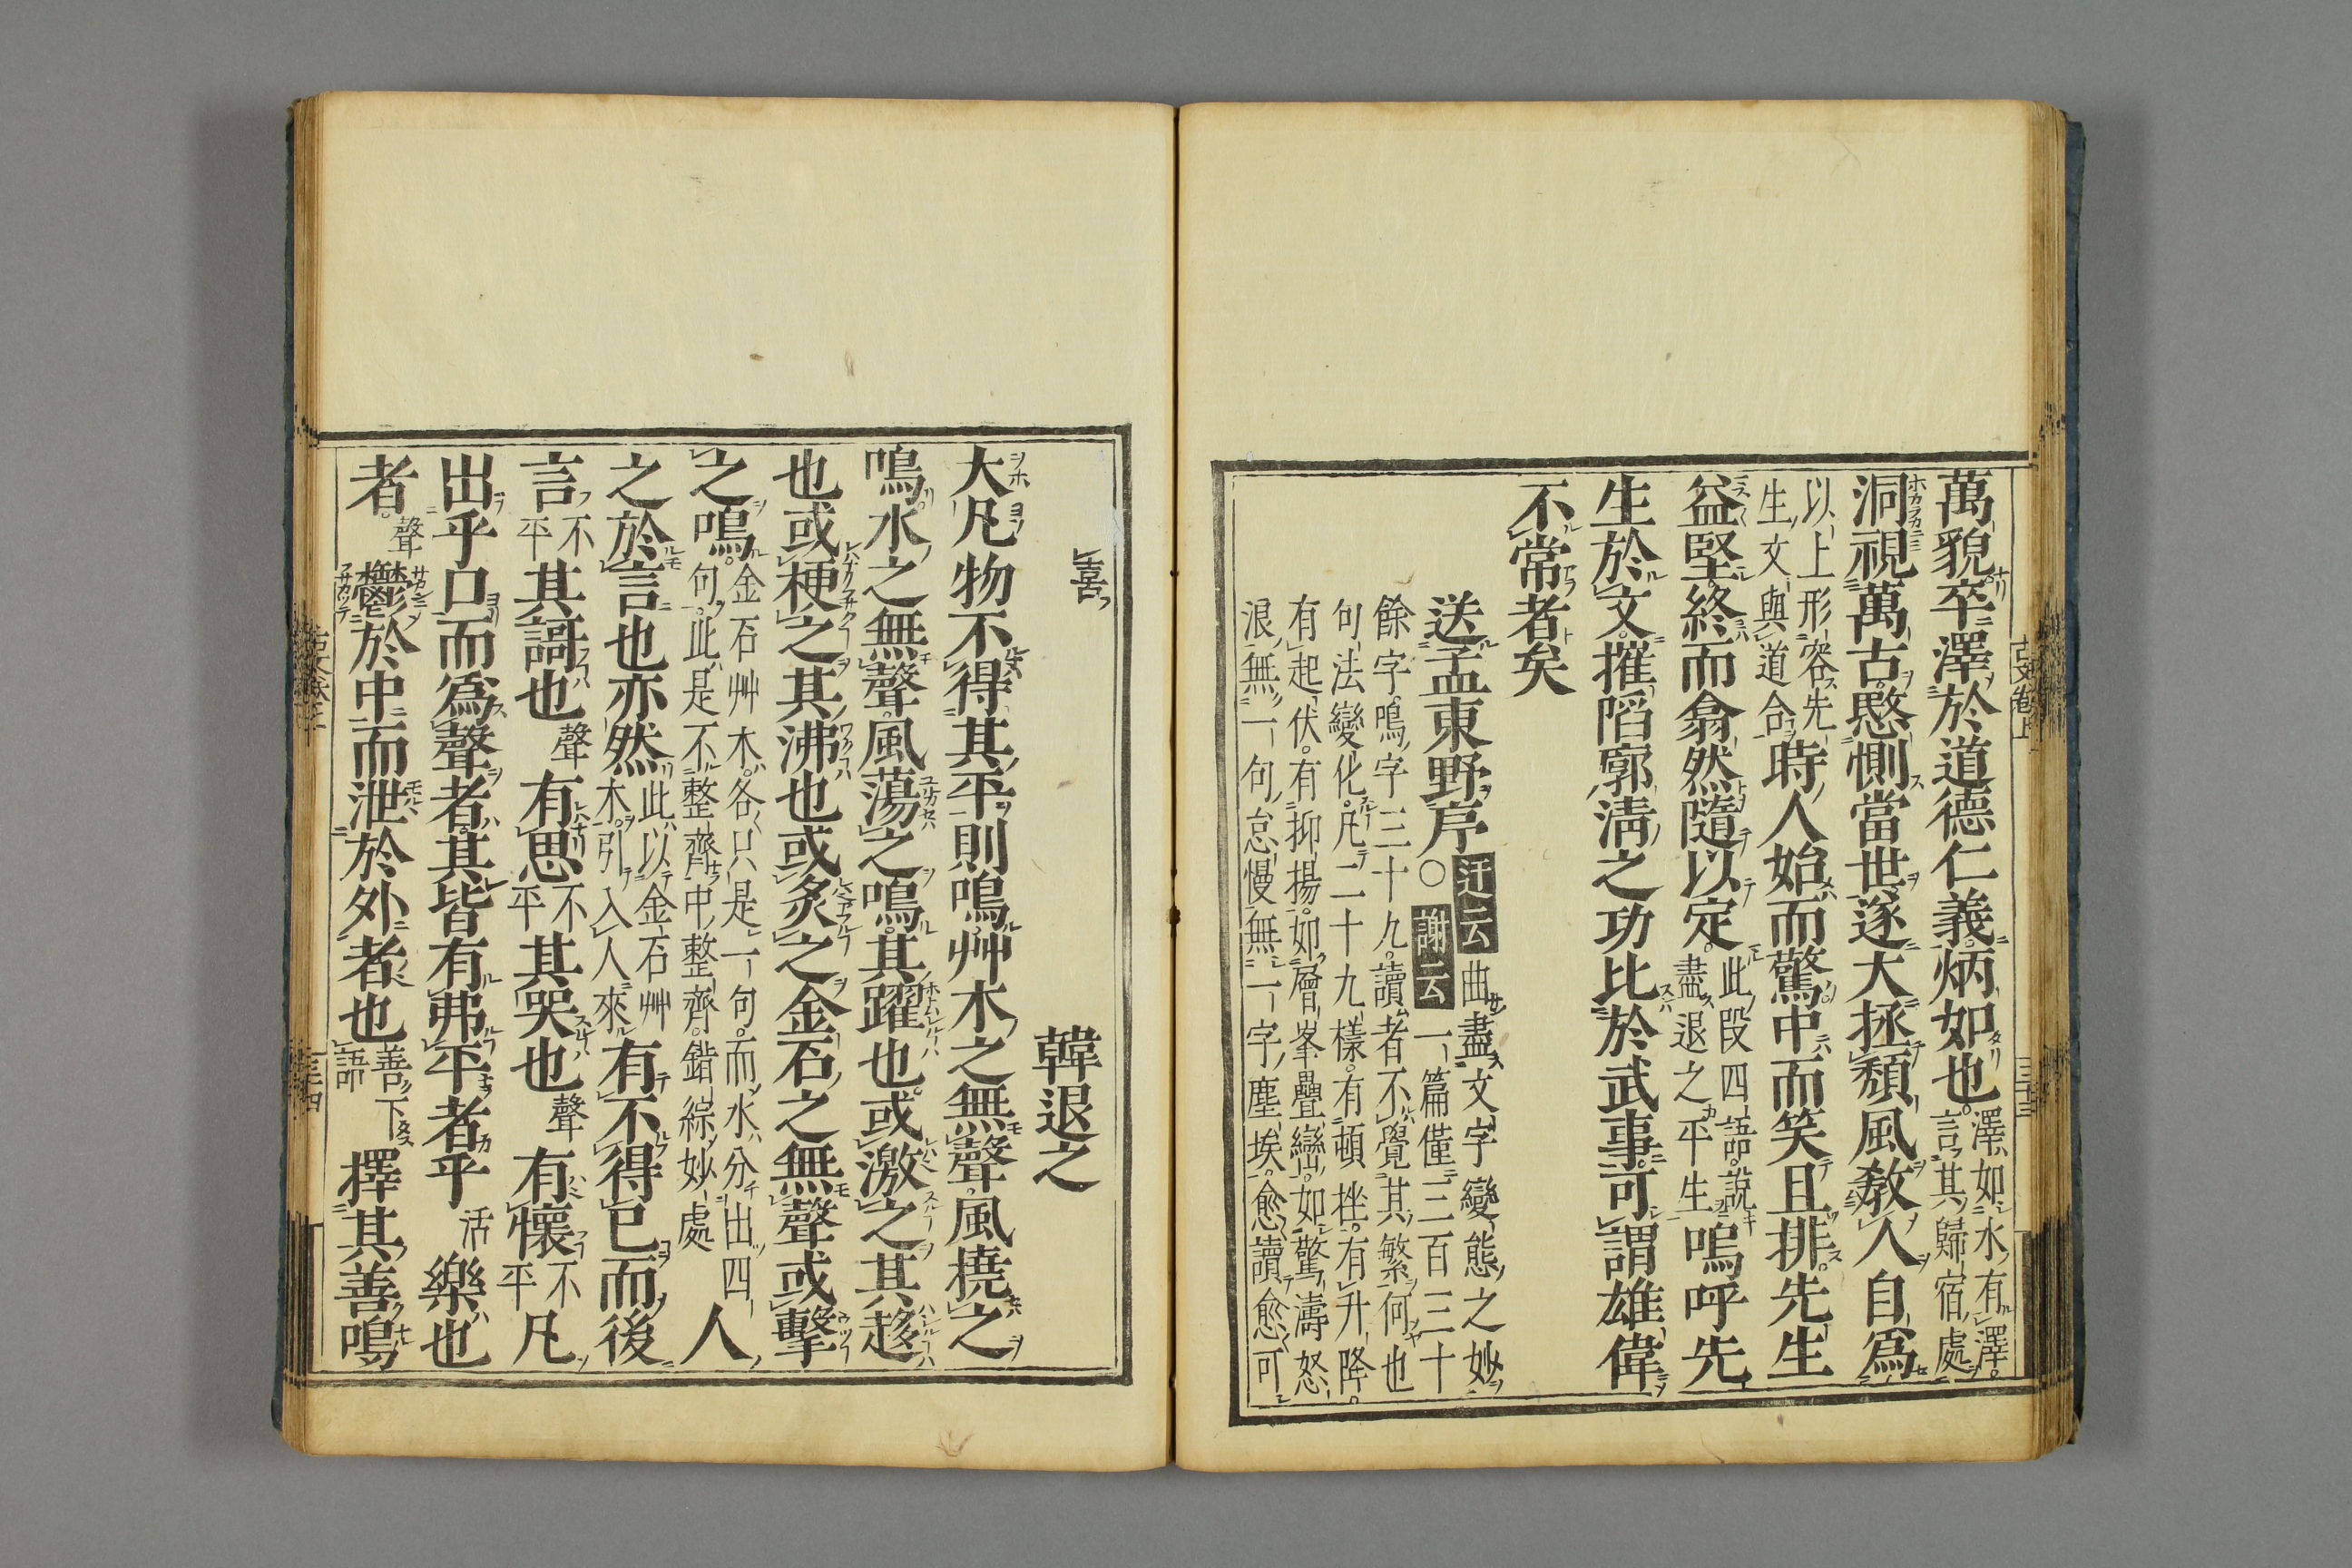 萬貌卒澤於道德仁義炳如也。澤如水有澤。言其歸宿處
洞視萬古愍惻當世遂大拯頽風敎人自爲
以上形容先生文與道合時人始而驚中而笑且排先生
益堅終而翕然隨以定。此段四語。說盡退之平生嗚呼先
生於文摧陷廓淸之功比於武事可謂雄偉
不常者矣
送孟東野序○迂云曲盡文字變態之妙謝云一篇僅三百三十
餘字。鳴字三十九。讀者不覺其繁何也
句法變化。凡二十九樣。有頓挫。有升降。
有起伏。有抑揚。如層峯疊巒。如驚濤怒
浪無一句怠慢無一字塵埃。愈讀愈可
喜
韓退之
大凡物不得其平則鳴艸木之無聲風撓之
鳴水之無聲風蕩之鳴其躍也或激之其趍
也或梗之其沸也或炙之金石之無聲或擊
之鳴。金石艸木。各只是一句。而水分出四句。此是不整齊中整齊。錯綜妙處人
之於言也亦然此以金石艸木。引入人來有不得已而後
言不平其謌也聲有思不平其哭也聲有懷不平凡
出乎口而爲聲者。其皆有弗平者乎活樂也
者。聲鬱於中而泄於外者也善下語擇其善鳴